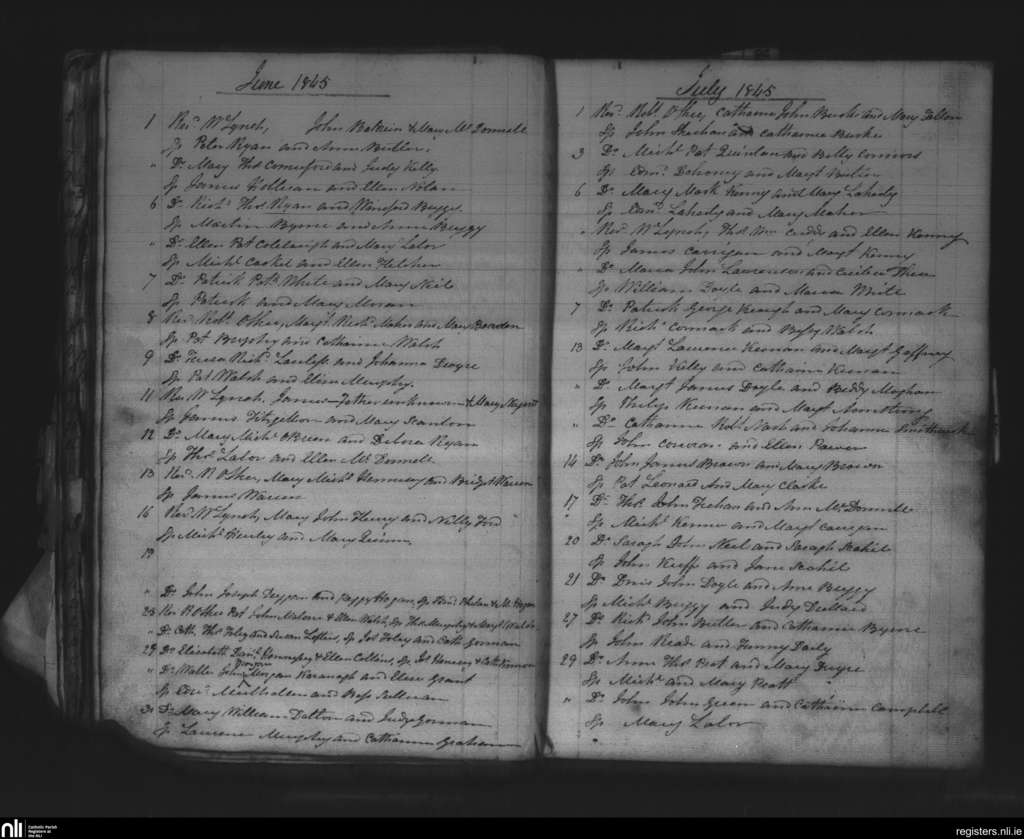 June 1845
1 Revd. W Lynch, John and Mary McDonnell
Sp Peter Ryan and Anne Butler.
" Do. Mary Thos Comerford and Judy Kelly
Sp James and Ellen Nolan
6 Do. Richd. Thos. Ryan and Buggy.
Sp Martin Byrne and Anne Buggy
" Do. Ellen Pat and Mary Lalor
Sp Michl. and Ellen Fletcher
7 Do. Patrick Patk. White and Mary Neile
Sp Patrick and Mary Moran
8 Rev Robt. O'Shee, Margt. Richd. Maher and Mary Reardon
Sp Pat and Catharine Walsh
9 Do. Teresa Richd. Lawless and Johanna Dwyre
Sp Pat Walsh and Eliza Murphy.
11 Rev W Lynch, James - Father unknown & Mary Nugent
Sp James Fitzgellon and Mary Scanlon
12 Do. Mary Michl. O'Brien and Debora Ryan
Sp Thos. Lalor and Ellen McDonnell
13 Revd. R O'Shee, Mary Michl. Hennessy and Bridgt Warren
Sp James Warren
16 Revd W Lynch, Mary John Fleury and Nelly Ford
Sp Michl. and Mary Quinn
19
" Do. John Joseph and Peggy Hogan, Sp Phelan & M. Hogan
25 Rev R O'Shee Pat John Malone & Ellen Welsh, Sp Thos Murphy & Margt
" Do. Cath. Thos Foley and Susan Loftus, Sp Jos Foley and Cath Gorman
29 Do. Elizabeth Danl. & Ellen Collins, Sp Jos & Cath
" Do. Walter John Morgan Kavanagh and Eliza Grant
Sp Edwd. and Bess Sullivan
30 Do. Mary William Dalton and Judy Gorman
Sp Laurence Murphy and Catharine Graham
July 1845
1 Revd. Robt. O'Shee, Catharine John Burke and Mary Fallon
Sp John Sheehan and Catharine Burke
3 Do. Michl. Pat Quinlan and Billy Connors
Sp Edmd. Dohonny and Margt
6 Do. Mary Mark Kenny and Mary Lahedy
Sp Edwd. Lahedy and Mary Maher
" Revd. W Lynch, Thos Wm. Cuddy and Ellen Kenny
Sp James Carrigan and Margt Kenny
" Do. Maria John Laurenson and Cecilia
Sp William Doyle and Maria White
7 Do. Patrick George Keough and Mary Cormack
Sp Richd. Cormack and Walsh
13 Do. Margt. Laurence Keenan and Margt Gaffney
Sp John Kelly and Catharine Keenan
" Do. Margt James Doyle and Biddy Meghan
Sp Philip Keenan and Margt Armstrong
" Do. Catharine Robt. Nash and Johanna
Sp John and Ellen Power
14 Do. John James Brown and Mary Brown
Sp Pat Leonard and Mary Clarke
17 Do. Thos. John Feehan and Ann McDonnell
Sp Michl. and Margt Carrigan
20 Do. Saragh John Neil and Saragh Scahil
Sp John Keeffe and Jane Scahil
21 Do. Denis John Doyle and Anne Buggy
Sp Michl. Buggy and Judy
27 Do. Richd. John Butler and Catharine Byrne
Sp John Reade and Fanny Daily
29 Do. Anne Thos Pratt and Mary Dwyre
Sp Michl. and Mary Pratt
" Do. John John Green and Catharine Campbell
Sp Mary Lalor
nli Catholic Parish
Registers at
the NLI
registers.nli.ie